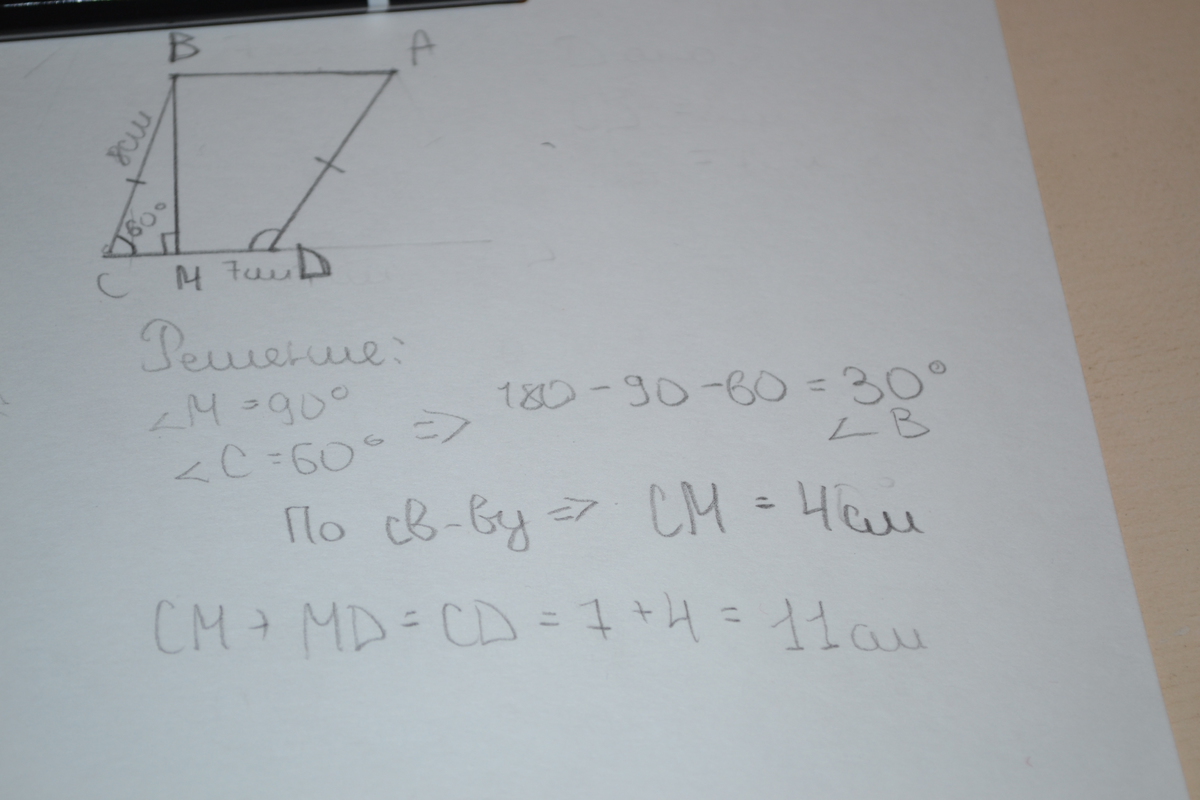 B A
8см
60°
C M 7см D
Решение:
∠M = 90° => 180 - 90 - 60 = 30°
∠C = 60° ∠B
По св-ву => CM = 4см
CM + MD = CD = 7 + 4 = 11см